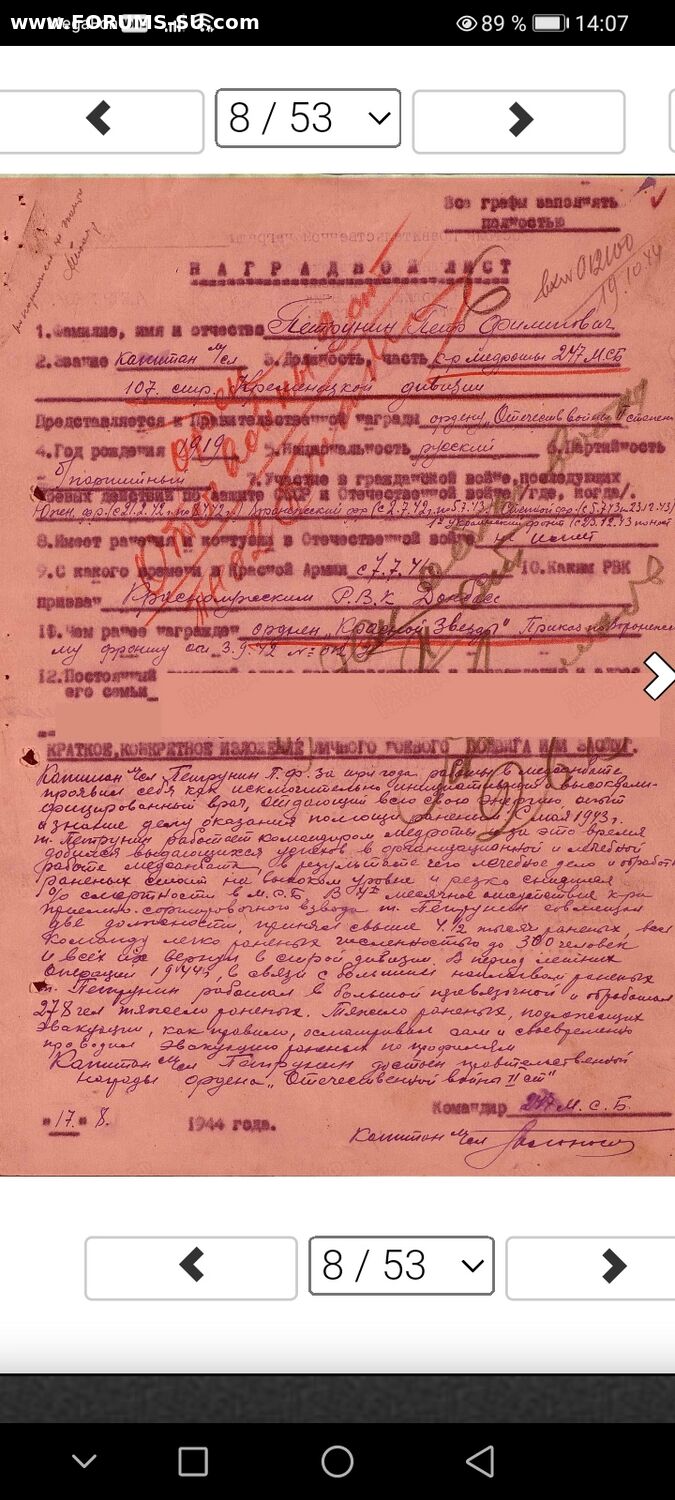 www.FORUMS-SU.com
89 % 14:07
8 / 53
Все графы заполнять
полностью
НАГРАДНОЙ ЛИСТ
вхм 012100
19.10.44
1.Фамилие, имя и отчество Петрунин Петр Филиппович
2.Звание капитан м/сл 3.Должность, часть к-р медроты 247 МСБ
107. стр. Кременецкой дивизии
Представляется к Правительственной награды ордену „Отечествен войны II степени
4.Год рождения 1919 5.Национальность русский 6.Партийность
б/партийный 7.Участие в гражданской войне, последующих
боевых действиях по защите СССР и Отечественной войне /где, когда/.
1й Украинский фронт (с 23.12.43 по наст
8.Имеет ранения и контузии в Отечественной войне не имеет
9.С какого времени в Красной Армии с 7.7.41 10.Каким РВК
призван Краснолучским Р.В.К Донбасс
11.Чем ранее награжден орден „Красной Звезды" Приказ по Воронежско
му фронту от 3.9.42 №
12.Постоянный
его семьи
КРАТКОЕ, КОНКРЕТНОЕ ИЗЛОЖЕНИЕ ЛИЧНОГО БОЕВОГО ПОДВИГА ИЛИ ЗАСЛУГ.
Капитан м/сл Петрунин П.Ф. за три года работы в медсанбате
проявил себя как исключительно инициативный высококвали-
фицированный врач, отдающий всю свою энергию, опыт
и знание делу оказания помощи раненым. С мая 1943 г.
т. Петрунин работает командиром медроты и за это время
добился выдающихся успехов в организационной и лечебной
работе медсанбата, в результате чего лечебное дело и обработка
раненых стоит на высоком уровне и резко снизился
% смертности в М.С.Б. В месячное отсутствие к-ра
приемно-сортировочного взвода т. Петрунин совмещал
две должности, принял свыше 4 1/2 тысяч раненых, взял
команду легко раненых численностью до 300 человек
и всех их вернул в строй дивизии. В период летних
операций 1944г, в связи с большим наплывом раненых
т. Петрунин работал в большой перевязочной и обработал
278 чел тяжело раненых. Тяжело раненых, подлежащих
эвакуации, как правило, осматривал сам и своевременно
проводил эвакуацию раненых по профилям
Капитан м/сл Петрунин достоин правительственной
награды ордена „Отечественной войны II ст"
Командир 247 М.С.Б.
„17" 8. 1944 года.
Капитан м/сл
8 / 53